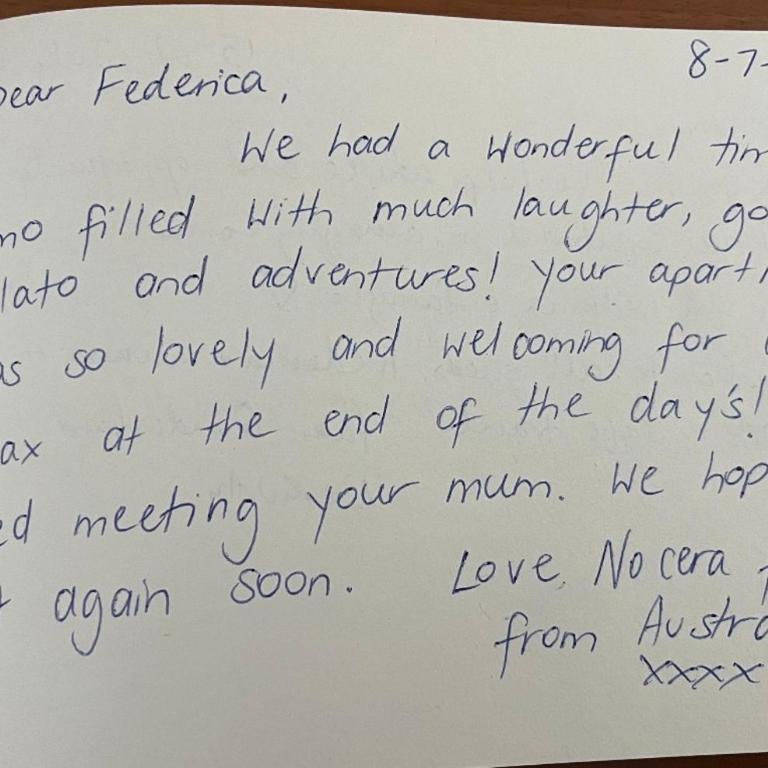 8-7-
ear Federica,
We had a wonderful tim
mo filled with much laughter, go
lato and adventures! Your apart
as so lovely and welcoming for
ax at the end of the day's!
ed meeting your mum. We hop
again soon. Love, Nocera
from Austra
xxxx